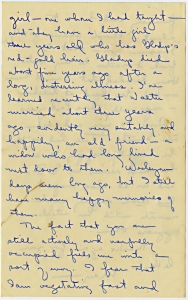 girl — one whom I had taught —
and they have a little girl
three years old who has Gladys's
red-gold hair. Gladys died
about five years ago after a
long, lingering illness. I've
learned recently that
married about three years
ago, evidently very suitably and
happily, an old friend — a
widow who had long lived
next door to them.
days seem long ago, but I still
have many happy memories of
them.
The fact that you are
still actively and usefully
occupied fills me with a
sort of envy. I fear that
I am vegetating fast and